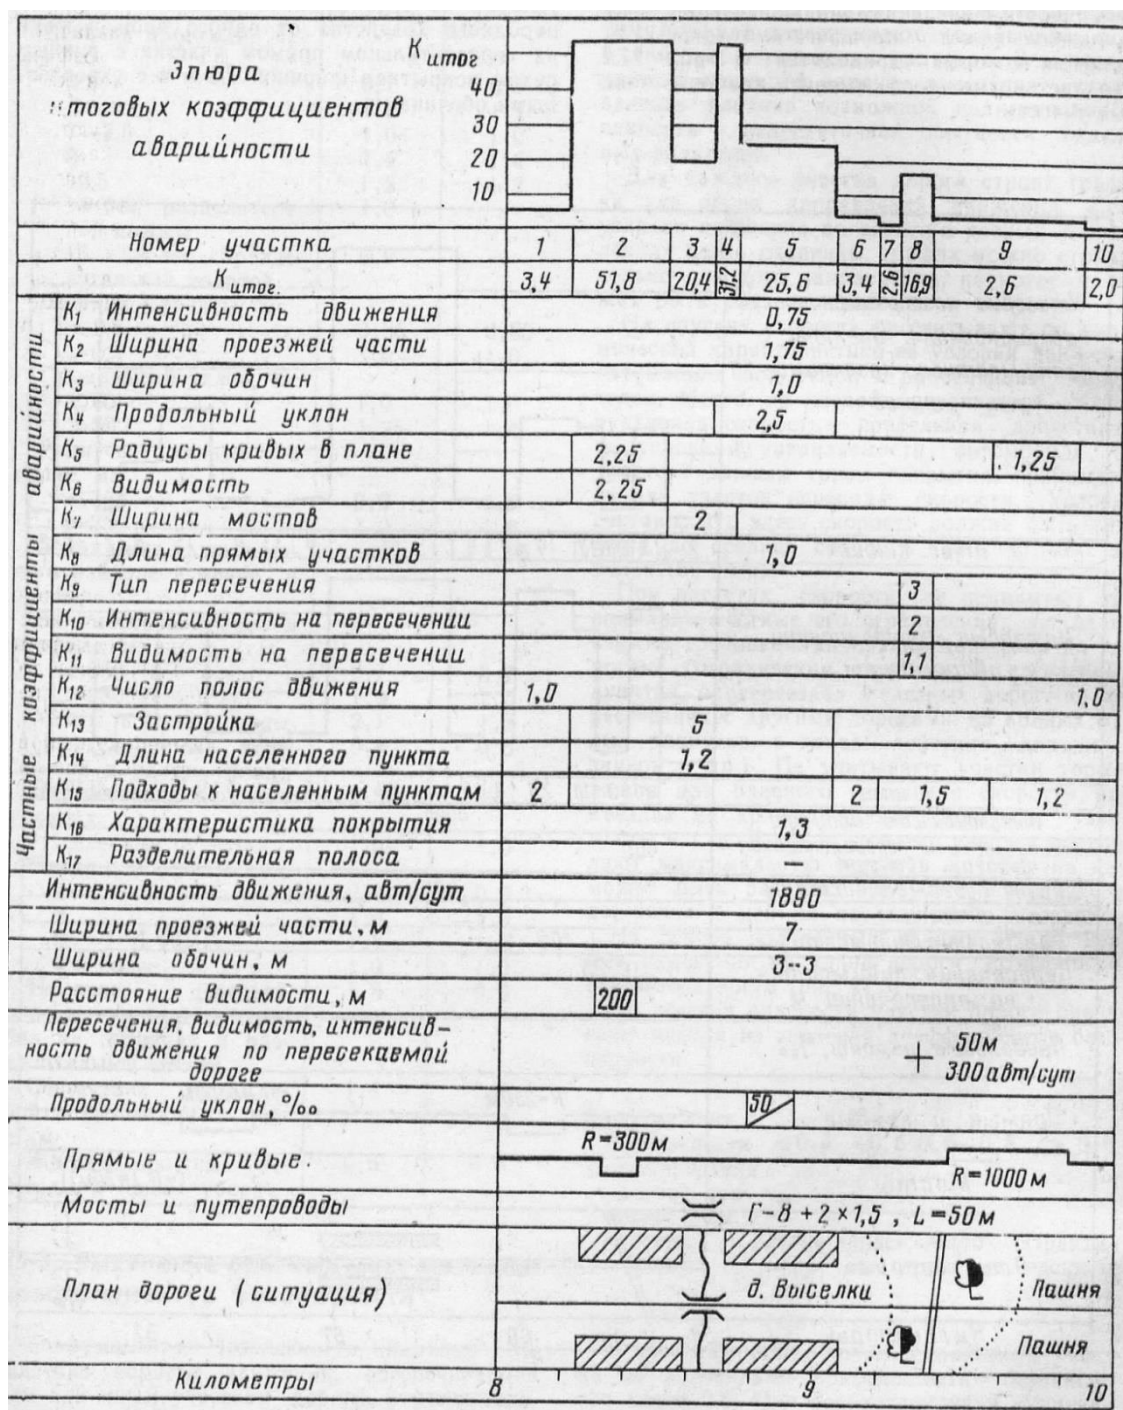 Эпюра
итоговых коэффициентов
аварийности
К итог
40
30
20
10
Номер участка 1 2 3 4 5 6 7 8 9 10
К итог. 3,4 51,8 20,4 31,2 25,6 3,4 2,6 16,9 2,6 2,0
Частные коэффициенты аварийности
К1 Интенсивность движения 0,75
К2 Ширина проезжей части 1,75
К3 Ширина обочин 1,0
К4 Продольный уклон 2,5
К5 Радиусы кривых в плане 2,25 1,25
К6 Видимость 2,25
К7 Ширина мостов 2
К8 Длина прямых участков 1,0
К9 Тип пересечения 3
К10 Интенсивность на пересечении 2
К11 Видимость на пересечении 1,1
К12 Число полос движения 1,0 1,0
К13 Застройка 5
К14 Длина населенного пункта 1,2
К15 Подходы к населенным пунктам 2 2 1,5 1,2
К16 Характеристика покрытия 1,3
К17 Разделительная полоса –
Интенсивность движения, авт/сут 1890
Ширина проезжей части, м 7
Ширина обочин, м 3--3
Расстояние видимости, м 200
Пересечения, видимость, интенсив-
ность движения по пересекаемой
дороге
50м
300авт/сут
Продольный уклон, ‰ 50
Прямые и кривые. R=300м R=1000м
Мосты и путепроводы Г-8+2×1,5, L=50м
План дороги (ситуация) д. Выселки Пашня
Пашня
Километры 8 9 10